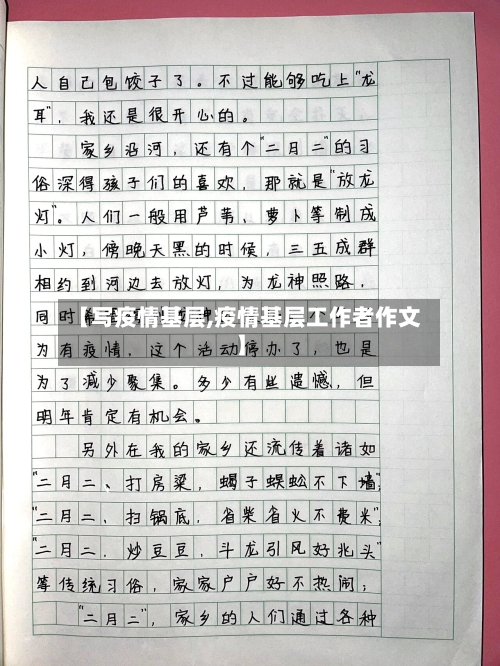 人自己包饺子了。不过能够吃上“龙
耳”，我还是很开心的。
家乡沿河，还有个“二月二”的习
俗深得孩子们的喜欢，那就是“放龙
灯”。人们一般用芦苇、萝卜等制成
小灯，傍晚天黑的时候，三五成群
相约到河边去放灯，为龙神照路，
同时
【写疫情基层,疫情基层工作者作文
】
为有疫情，这个活动停办了，也是
为了减少聚集。多少有些遗憾，但
明年肯定有机会。
另外在我的家乡还流传着诸如
“二月二、打房梁，蝎子蜈蚣不下墙”；
“二月二、扫锅底，省柴省火不费米”；
“二月二．炒豆豆，斗龙引风好兆头”
等传统习俗，家家户户好不热闹；
“二月二”，家乡的人们通过各种